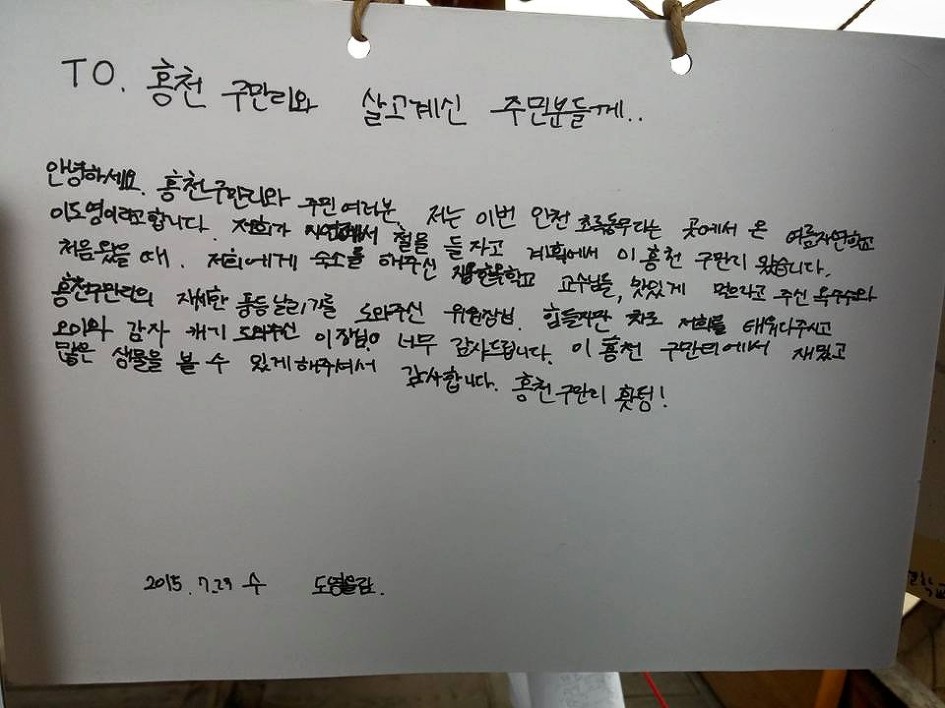 TO. 홍천 구만리와 살고계신 주민분들께..
안녕하세요. 홍천구만리와 주민 여러분 저는 이번 인천 초록동무라는 곳에서 온 여름자연학교
이도영이라고합니다. 저희가 에서 들 자고 계획에서 이 홍천 구만리 왔습니다.
처음왔을 때. 저희에게 숙소를 해주신 교수님들, 맛있게 먹으라고 주신 옥수수와
홍천구만리의 자세한 풍등날리기를 도와주신 위원장님. 힘들지만 차로 저희를 태워다주시고
오이와 감자 캐기 도와주신 이장님이 너무 감사드립니다. 이 홍천 구만리에서 재밌고
많은 생물을 볼 수 있게해주셔서 감사합니다. 홍천구만리 홧팅!
2015. 7.29 수 도영올림.